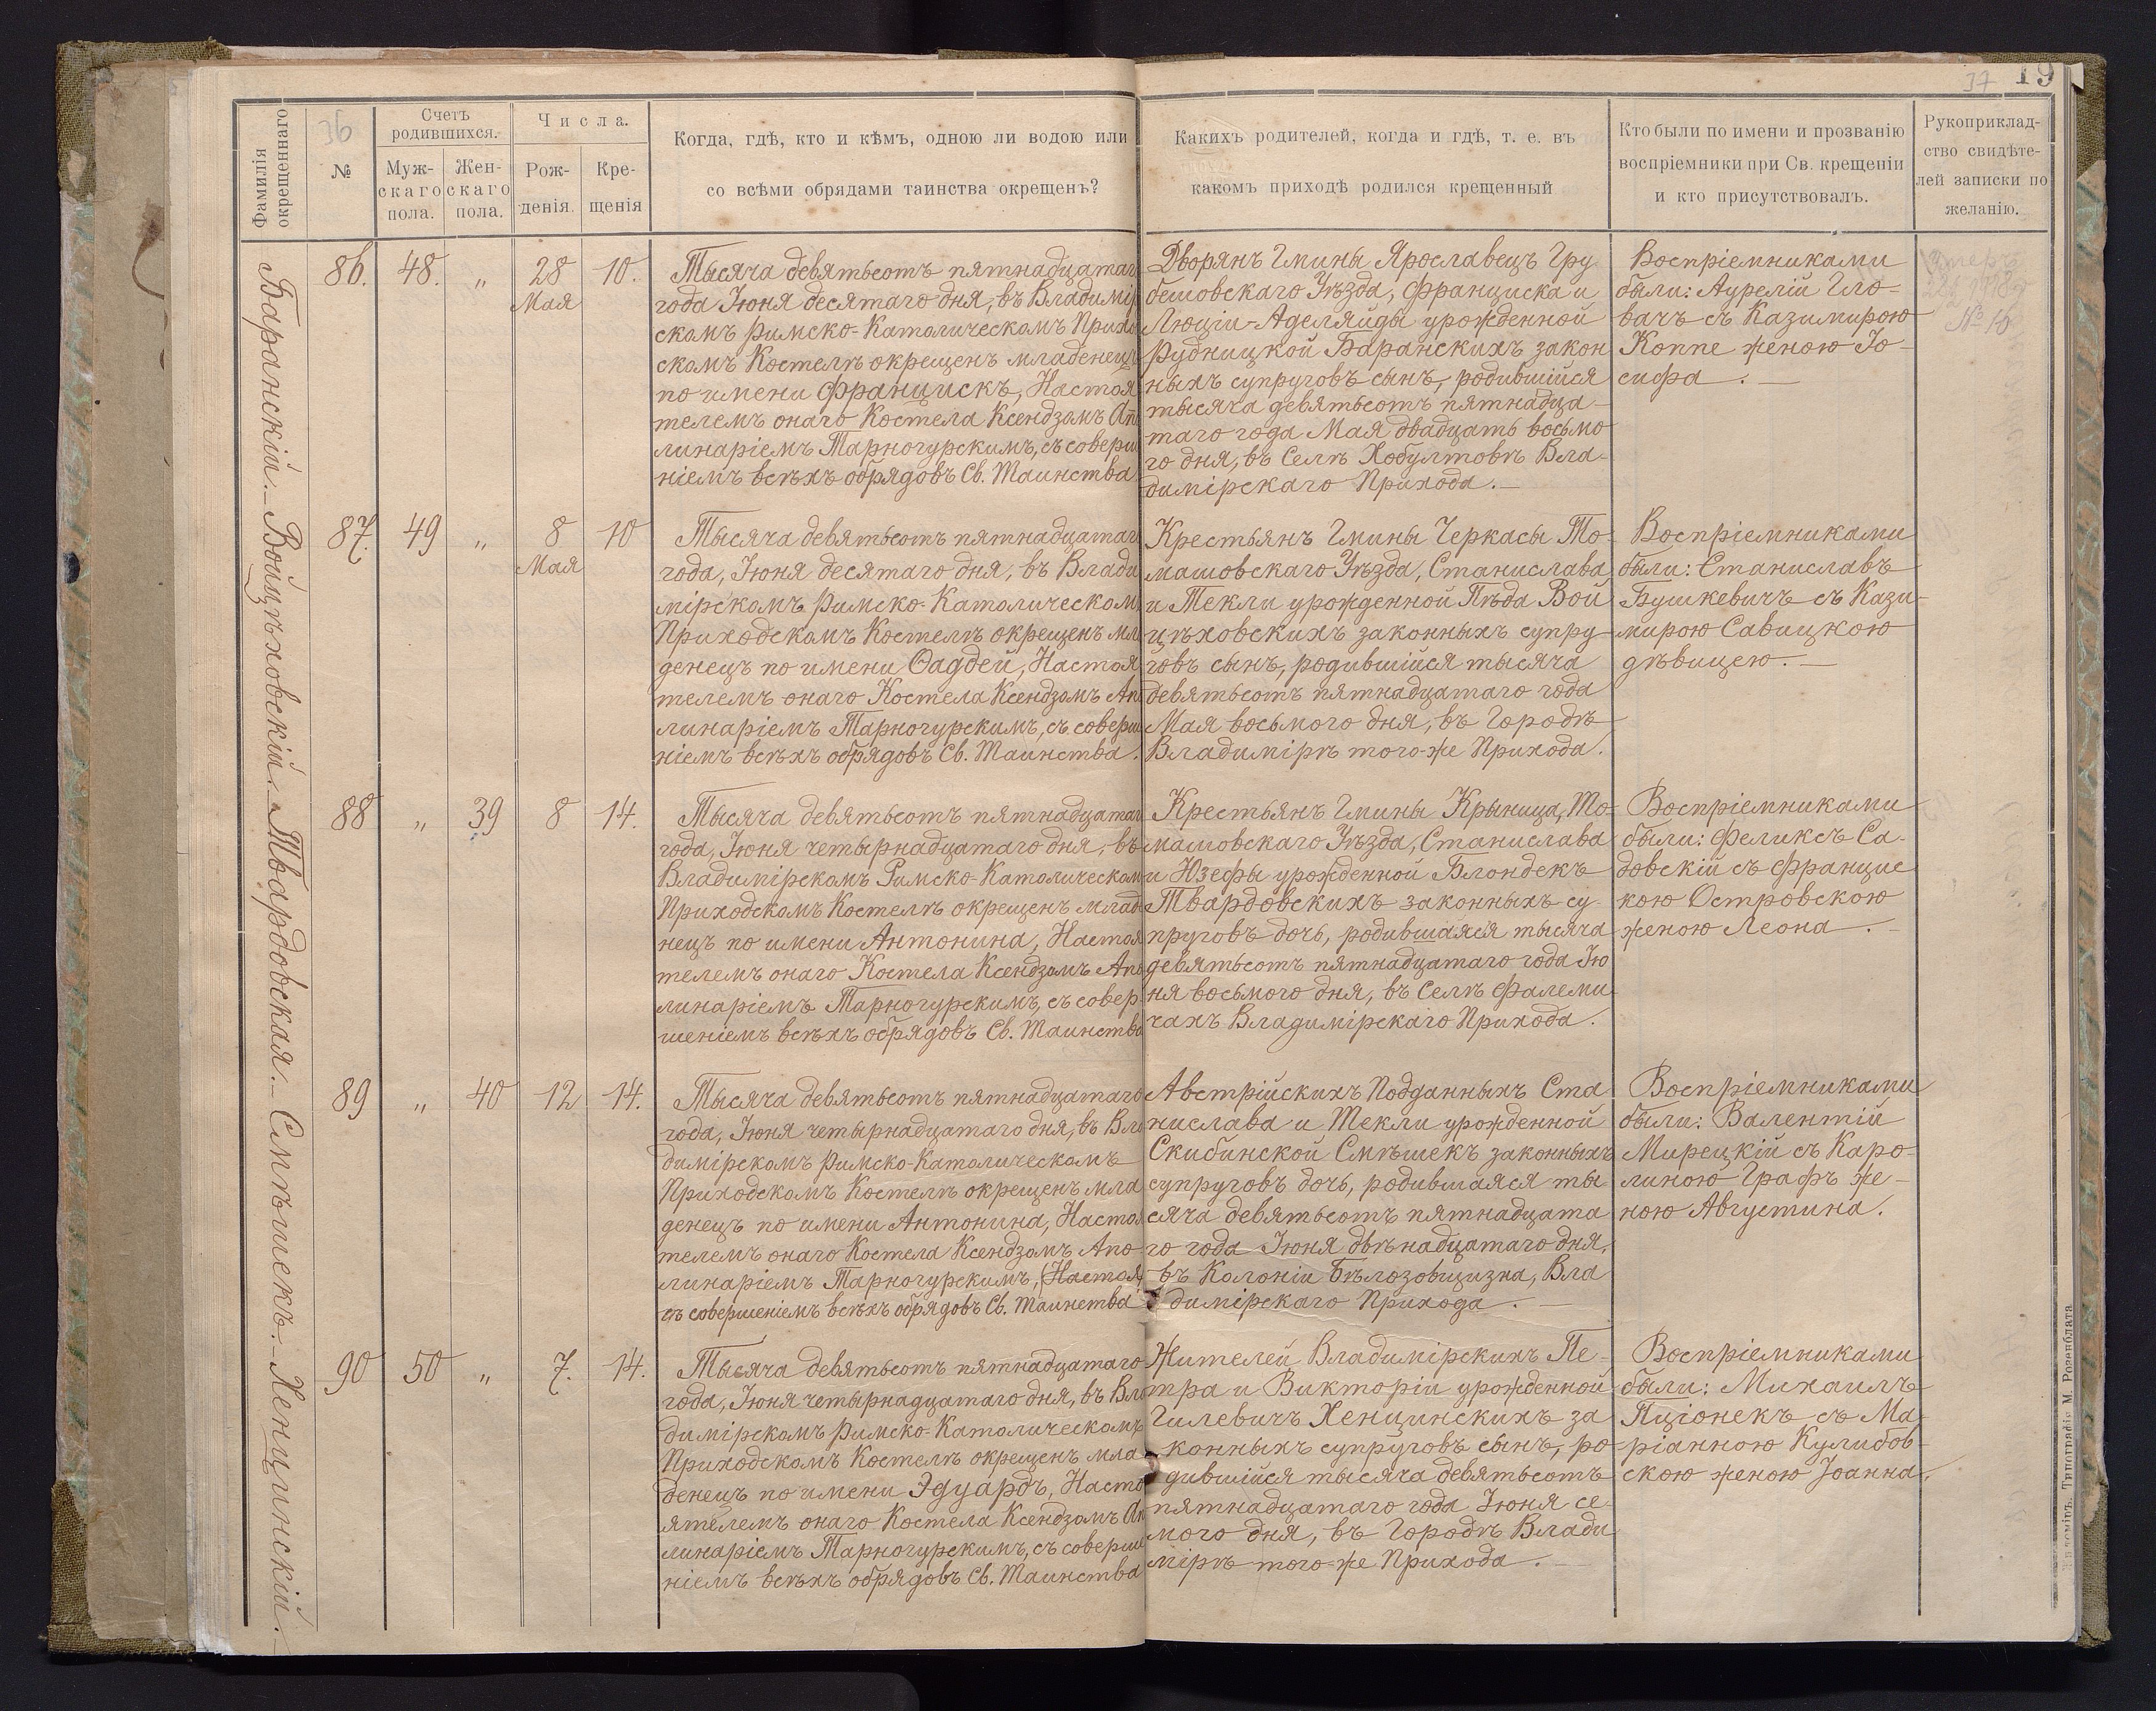 37 19
Фамилія
окрещеннаго
36
№
Счетъ
родившихся.
Муж-
скаго
пола.
Жен-
скаго
пола.
Числа.
Рож-
денія.
Кре-
щенія
Когда, гдѣ, кто и кѣмъ, одною ли водою или
со всѣми обрядами таинства окрещенъ?
Какихъ родителей, когда и гдѣ, т. е. въ
какомъ приходѣ родился крещенный
Кто были по имени и прозванію
воспріемники при Св. крещеніи
и кто присутствовалъ.
Рукоприклад-
ство свидѣте-
лей записки по
желанію.
Баранскій. — Войцѣховскій. — Твардовская. — Смѣшекъ. — Хенцинскій. —
86. 48. „ 28 10.
Мая
Тысяча девятьсотъ пятнадцатаг
года Іюня десятаго дня, въ Владимір
скомъ Римско-Католическомъ Прихо
скомъ Костелѣ окрещенъ младенецъ
по имени Францискъ, Настоя
телемъ онаго Костела Ксендзомъ Апо
линаріемъ Тарногурскимъ, съ соверш
ніемъ всѣхъ обрядовъ Св. Таинства.
Дворянъ Гмины Ярославецъ Гру
бешовскаго Уѣзда, Франциска и
Люціи-Аделяйды урожденной
Рудницкой Баранскихъ закон
ныхъ супруговъ сынъ, родившійся
тысяча девятьсотъ пятнадца-
таго года Мая двадцать восьмо
го дня, въ Селѣ Хобултовѣ Вла-
димірскаго Прихода. —
Воспріемниками
были: Аурелій Гло-
вачъ съ Казимирою
Коппе женою Іо-
сифа. —
№ 16
87. 49 „ 8 10
Мая
Тысяча девятьсотъ пятнадцатаг
года, Іюня десятаго дня, въ Влади
мірскомъ Римско-Католическом
Приходскомъ Костелѣ окрещенъ мла
денецъ по имени Ѳаддей, Настоя
телемъ онаго Костела Ксендзомъ Апо
линаріемъ Тарногурскимъ, съ соверш
ніемъ всѣхъ обрядовъ Св. Таинства.
Крестьянъ Гмины Черкасы То-
машовскаго Уѣзда, Станислава
и Текли урожденной Пѣда Вой
цѣховскихъ законныхъ супру-
говъ сынъ, родившійся тысяча
девятьсотъ пятнадцатаго года
Мая восьмого дня, въ Городѣ
Владимірѣ того-же Прихода.
Воспріемниками
были: Станиславъ
Бушкевичъ съ Кази-
мирою Савицкою
дѣвицею. —
88 „ 39 8 14.
Тысяча девятьсотъ пятнадцатаг
года, Іюня четырнадцатаго дня, въ
Владимірскомъ Римско-Католическом
Приходскомъ Костелѣ окрещенъ младе
нецъ по имени Антонина, Настоя
телемъ онаго Костела Ксендзомъ Апо
линаріемъ Тарногурскимъ, съ совер
шеніемъ всѣхъ обрядовъ Св. Таинства
Крестьянъ Гмины Крыница, То-
машовскаго Уѣзда, Станислава
и Юзефы урожденной Блондекъ
Твардовскихъ законныхъ су-
пруговъ дочь, родившаяся тысяча
девятьсотъ пятнадцатаго года Ію
ня восьмого дня, въ Селѣ Фалеми-
чахъ Владимірскаго Прихода.
Воспріемниками
были: Феликсъ Са-
довскій съ Францис
кою Островскою
женою Леона. —
89 „ 40 12 14.
Тысяча девятьсотъ пятнадцатаго
года, Іюня четырнадцатаго дня, въ Вла
димірскомъ Римско-Католическомъ
Приходскомъ Костелѣ окрещенъ мла
денецъ по имени Антонина, Настоя
телемъ онаго Костела Ксендзомъ Апо-
линаріемъ Тарногурскимъ, (Настоя)
съ совершеніемъ всѣхъ обрядовъ Св. Таинства
Австрійскихъ Подданныхъ Ста
нислава и Текли урожденной
Скибинской Смѣшекъ законныхъ
супруговъ дочь, родившаяся ты
сяча девятьсотъ пятнадцата
го года Іюня двѣнадцатаго дня,
въ Колоніи Бѣлозовщизна, Вла
димірскаго Прихода. —
Воспріемниками
были: Валентій
Мирецкій съ Каро-
линою Графъ же-
ною Августина.
90 50 „ 7. 14.
Тысяча девятьсотъ пятнадцатаго
года, Іюня четырнадцатаго дня, въ Вла
димірскомъ Римско-Католическомъ
Приходскомъ Костелѣ окрещенъ мла-
денецъ по имени Эдуардъ, Насто
ятелемъ онаго Костела Ксендзомъ Ап
линаріемъ Тарногурскимъ, съ соверше
ніемъ всѣхъ обрядовъ Св. Таинства
Жителей Владимірскихъ Пе-
тра и Викторіи урожденной
Гилевичъ Хенцинскихъ за
конныхъ супруговъ сынъ, ро-
дившійся тысяча девятьсотъ
пятнадцатаго года Іюня се-
мого дня, въ Городѣ Влади
мірѣ того-же Прихода. —
Воспріемниками
были: Михаилъ
Пціонекъ съ Ма-
ріанною Кулибов-
скою женою Іоанна.
Типографія М. Розенблата